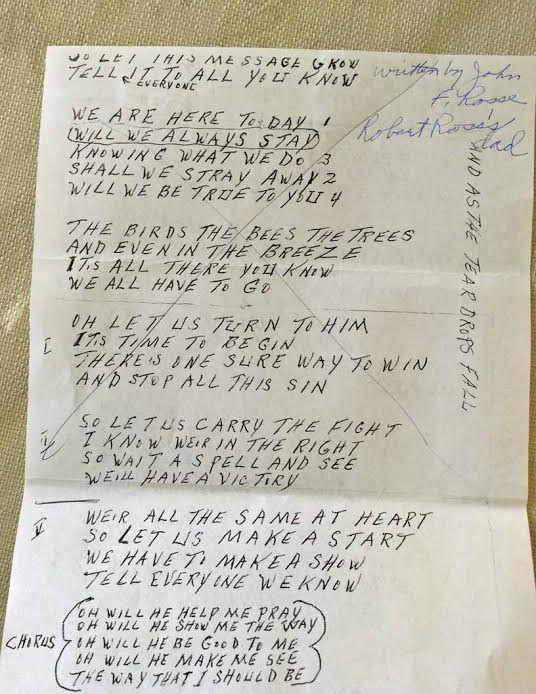 SO LET THIS MESSAGE GROW
TELL IT TO ALL YOU KNOW
EVERYONE
written by John
F. Rosse
Robert Rosse
dad
WE ARE HERE TO DAY 1
WILL WE ALWAYS STAY
KNOWING WHAT WE DO 3
SHALL WE STRAY AWAY 2
WILL WE BE TRUE TO YOU 4
THE BIRDS THE BEES THE TREES
AND EVEN IN THE BREEZE
ITS ALL THERE YOU KNOW
WE ALL HAVE TO GO
AND AS THE TEAR DROPS FALL
I
OH LET US TURN TO HIM
ITS TIME TO BEGIN
THERE'S ONE SURE WAY TO WIN
AND STOP ALL THIS SIN
II
SO LET US CARRY THE FIGHT
I KNOW WEIR IN THE RIGHT
SO WAIT A SPELL AND SEE
WEILL HAVE A VICTIRY
V
WEIR ALL THE SAME AT HEART
SO LET US MAKE A START
WE HAVE TO MAKE A SHOW
TELL EVERYONE WE KNOW
CHORUS
OH WILL HE HELP ME PRAY
OH WILL HE SHOW ME THE WAY
OH WILL HE BE GOOD TO ME
OH WILL HE MAKE ME SEE
THE WAY THAT I SHOULD BE